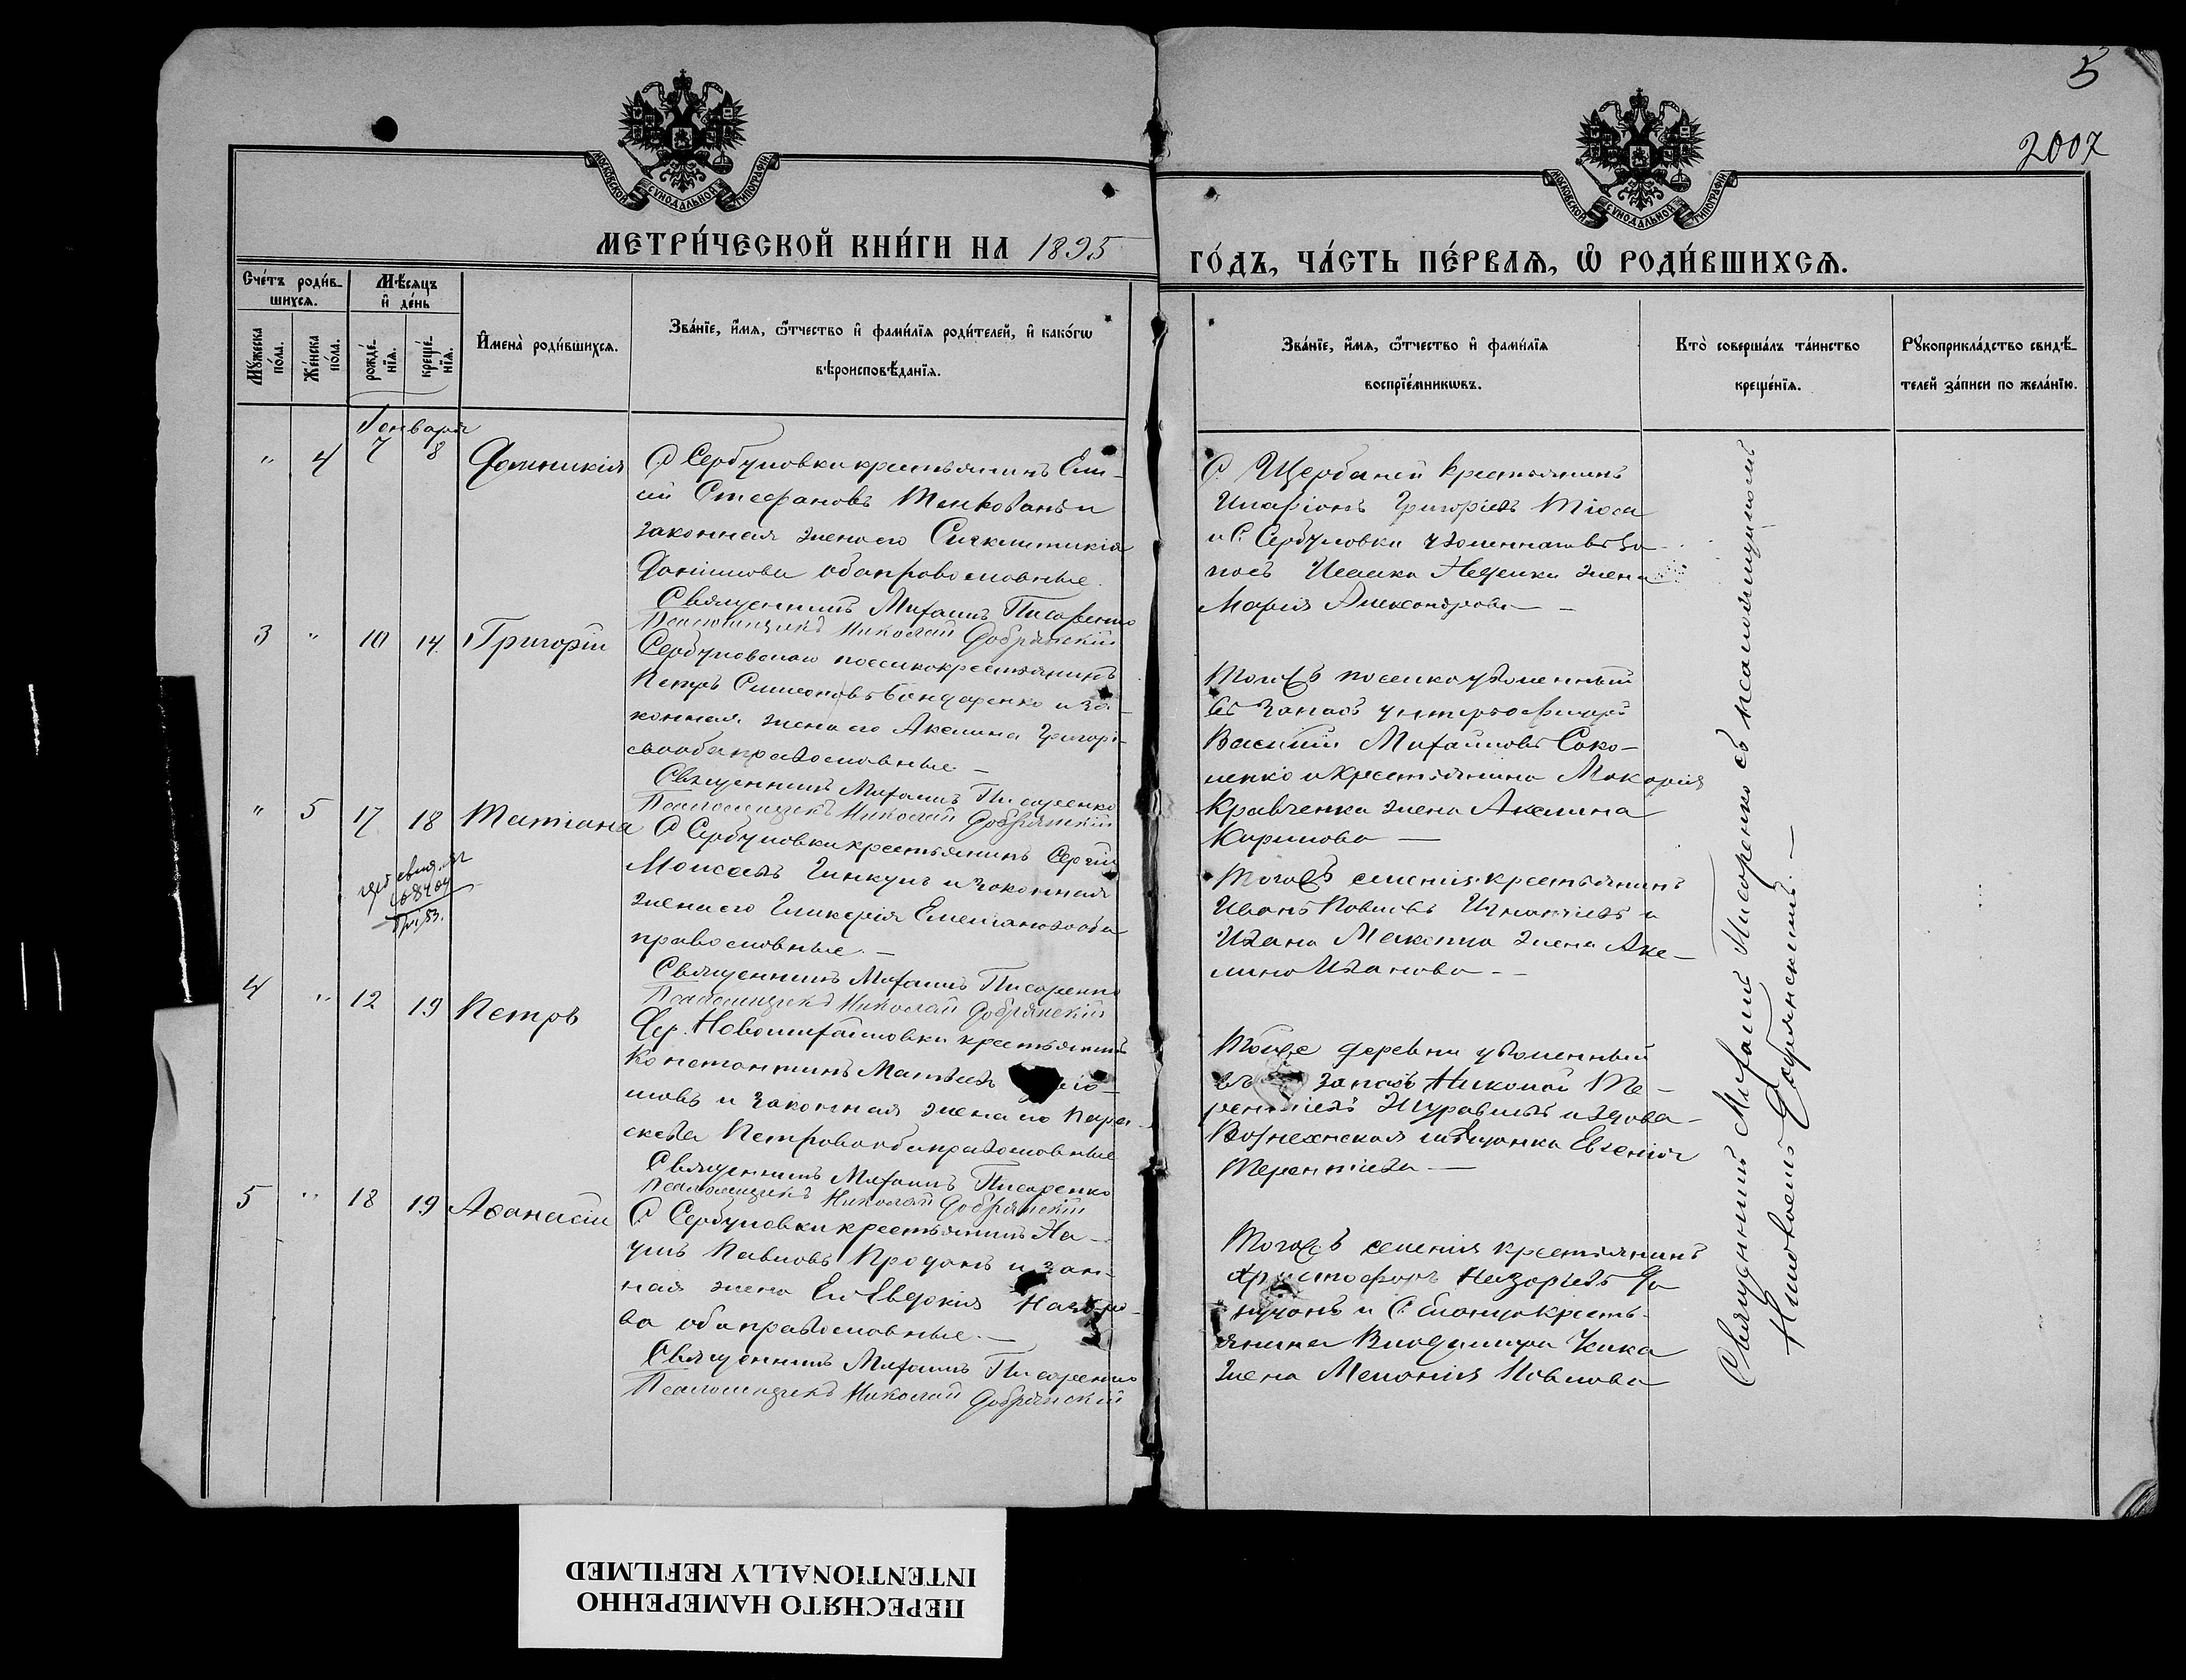 5
2007
МОСКОВСКОЙ СУНОДАЛЬНОЙ ТИПОГРАФІИ
МОСКОВСКОЙ СУНОДАЛЬНОЙ ТИПОГРАФІИ
МЕТРИ́ЧЕСКОЙ КНИ́ГИ НА 1895
ГО́ДЪ, ЧА́СТЬ ПЕ́РВАѦ, Ѽ РОДИ́ВШИХСѦ.
Сче́тъ роди́в-
шихсѧ.
Мꙋ́жеска по́ла.
Же́нска по́ла.
Мѣ́сѧцъ
и҆ де́нь
рожде́-
нїѧ.
креще́-
нїѧ.
И҆мена̀ роди́вшихсѧ.
Зва́нїе, и҆́мѧ, ѻ҆́тчество и҆ фами́лїѧ роди́телей, и҆ како́гѡ
вѣроисповѣ́данїѧ.
Зва́нїе, и҆́мѧ, ѻ҆́тчество и҆ фами́лїѧ
воспрїе́мникѡвъ.
Кто̀ соверша́лъ та́инство
креще́нїѧ.
Рꙋкоприкла́дство свидѣ́-
телей за́писи по жела́нїю.
Генваря
" 4 7 8 Домникія
С. Сербуловки крестьянинъ
Стефановъ и
законная жена его Синклитикія
Даніилова оба православные.
Священникъ Михаилъ Писаренко
Псаломщикъ Николай Добрянскій
С. Щербаней крестьянинъ
Иларіонъ Григоріевъ
и С. Сербуловки уволеннаго въ за-
пасъ жена
Марія Александрова —
3 " 10 14 Григорій
Сербуловскаго поселка крестьянинъ
Петръ Симеоновъ Бондаренко и за-
конная жена его Акилина Григорі-
ева оба православные —
Священникъ Михаилъ Писаренко
Псаломщикъ Николай Добрянскій
Тогожъ поселка уволенный
въ запасъ унтеръ офицеръ
Василій Михайловъ Соко-
ленко и крестьянина Макарія
Кравченка жена Акилина
Кирилова —
" 5 17 18 Татіана
С. Сербуловки крестьянинъ Сергій
Моисеевъ и законная
жена его Гликерія Емеліанова оба
православные. —
Священникъ Михаилъ Писаренко
Псаломщикъ Николай Добрянскій
Тогожъ селенія крестьянинъ
Иванъ Павловъ и
Ивана жена Аки-
лина Иванова —
4 " 12 19 Петръ
Дер. Новомихайловки крестьянинъ
Константинъ Матвеевъ
и законная жена его Пара-
скева Петрова оба православные
Священникъ Михаилъ Писаренко
Псаломщикъ Николай Добрянскій
Тойже деревни уволенный
въ запасъ Николай Те-
рентіевъ Журавлевъ и вдова
Вознесенская мѣщанка Евгенія
Терентіева —
5 " 18 19 Аѳанасій
С. Сербуловки крестьянинъ На-
умъ Павловъ Проданъ и закон-
ная жена его Евдокія Назарі-
ва оба православные. —
Священникъ Михаилъ Писаренко
Псаломщикъ Николай Добрянскій
Тогожъ селенія крестьянинъ
Христофоръ Назаріевъ
и С. кресть-
янина Владиміра
жена Меланія Павлова
Священникъ Михаилъ Писаренко съ псаломщикомъ
Николаемъ Добрянскимъ. —
ПЕРЕСНЯТО НАМЕРЕННО
INTENTIONALLY REFILMED